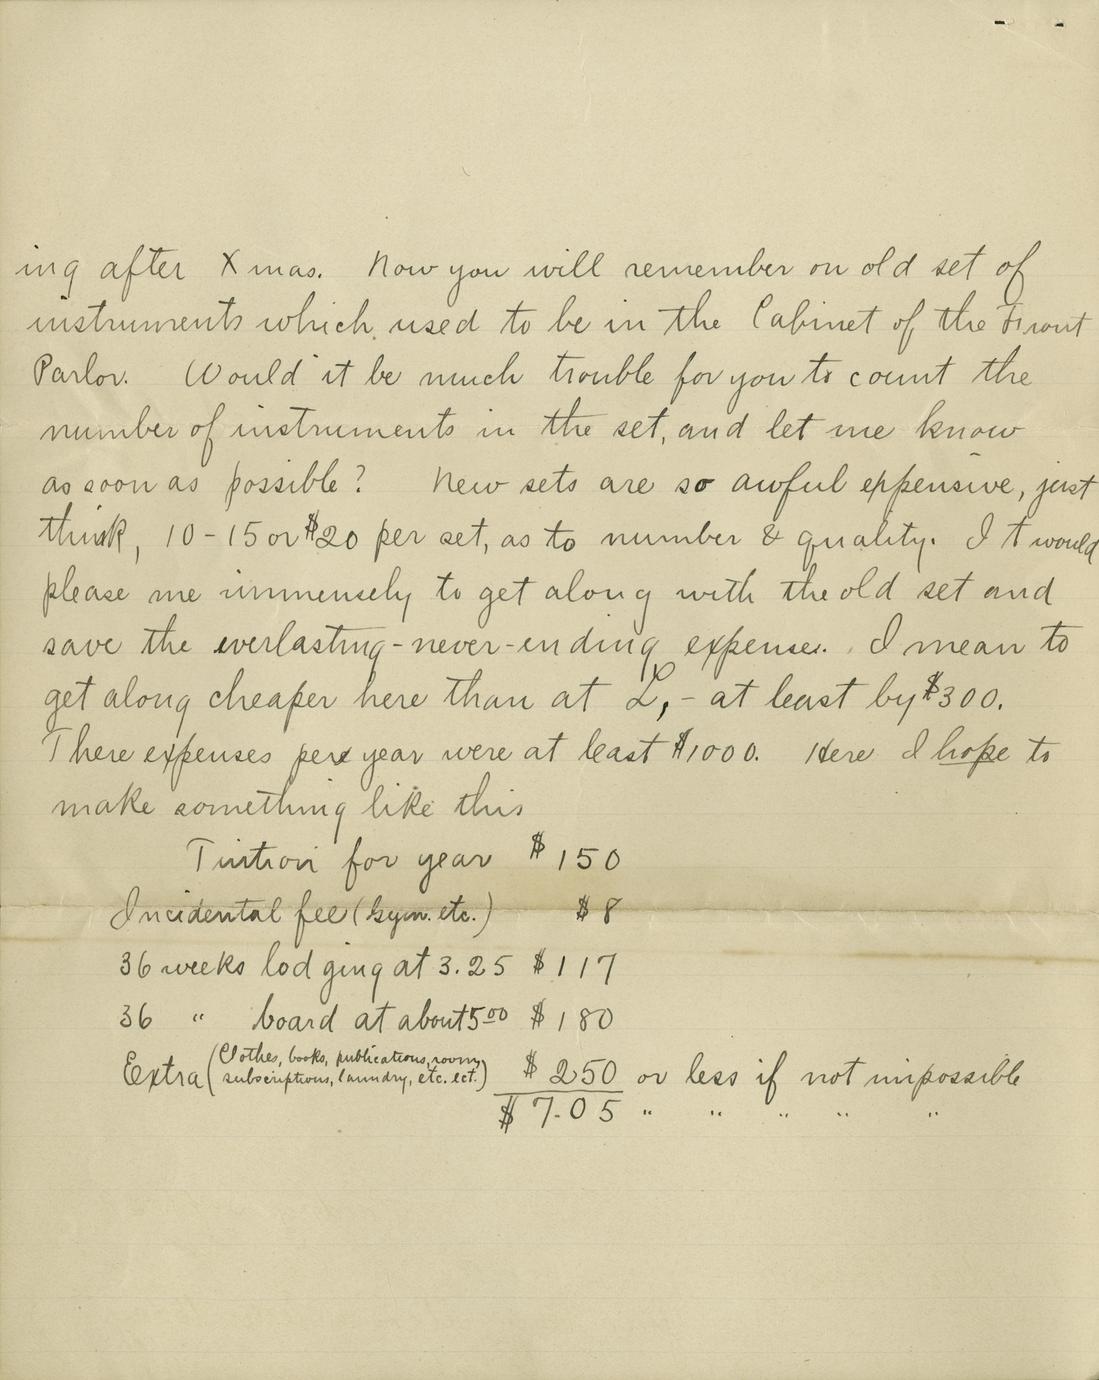 ing after Xmas. Now you will remember an old set of
instruments which used to be in the Cabinet of the Front
Parlor. Would it be much trouble for you to count the
number of instruments in the set, and let me know
as soon as possible? New sets are so awful expensive, just
think, 10-15 or $20 per set, as to number & quality. It would
please me immensely to get along with the old set and
save the everlasting-never-ending expenses. I mean to
get along cheaper here than at L, - at least by $300.
There expenses per year were at least $1000. Here I hope to
make something like this
Tuition for year $150
Incidental fee (Gym. etc.) $8
36 weeks lodging at 3.25 $117
36 " board at about 5.00 $180
Extra (Clothes, books, publications, room,
subscriptions, laundry, etc. ect.) $250 or less if not impossible
$7.05 " " " " "